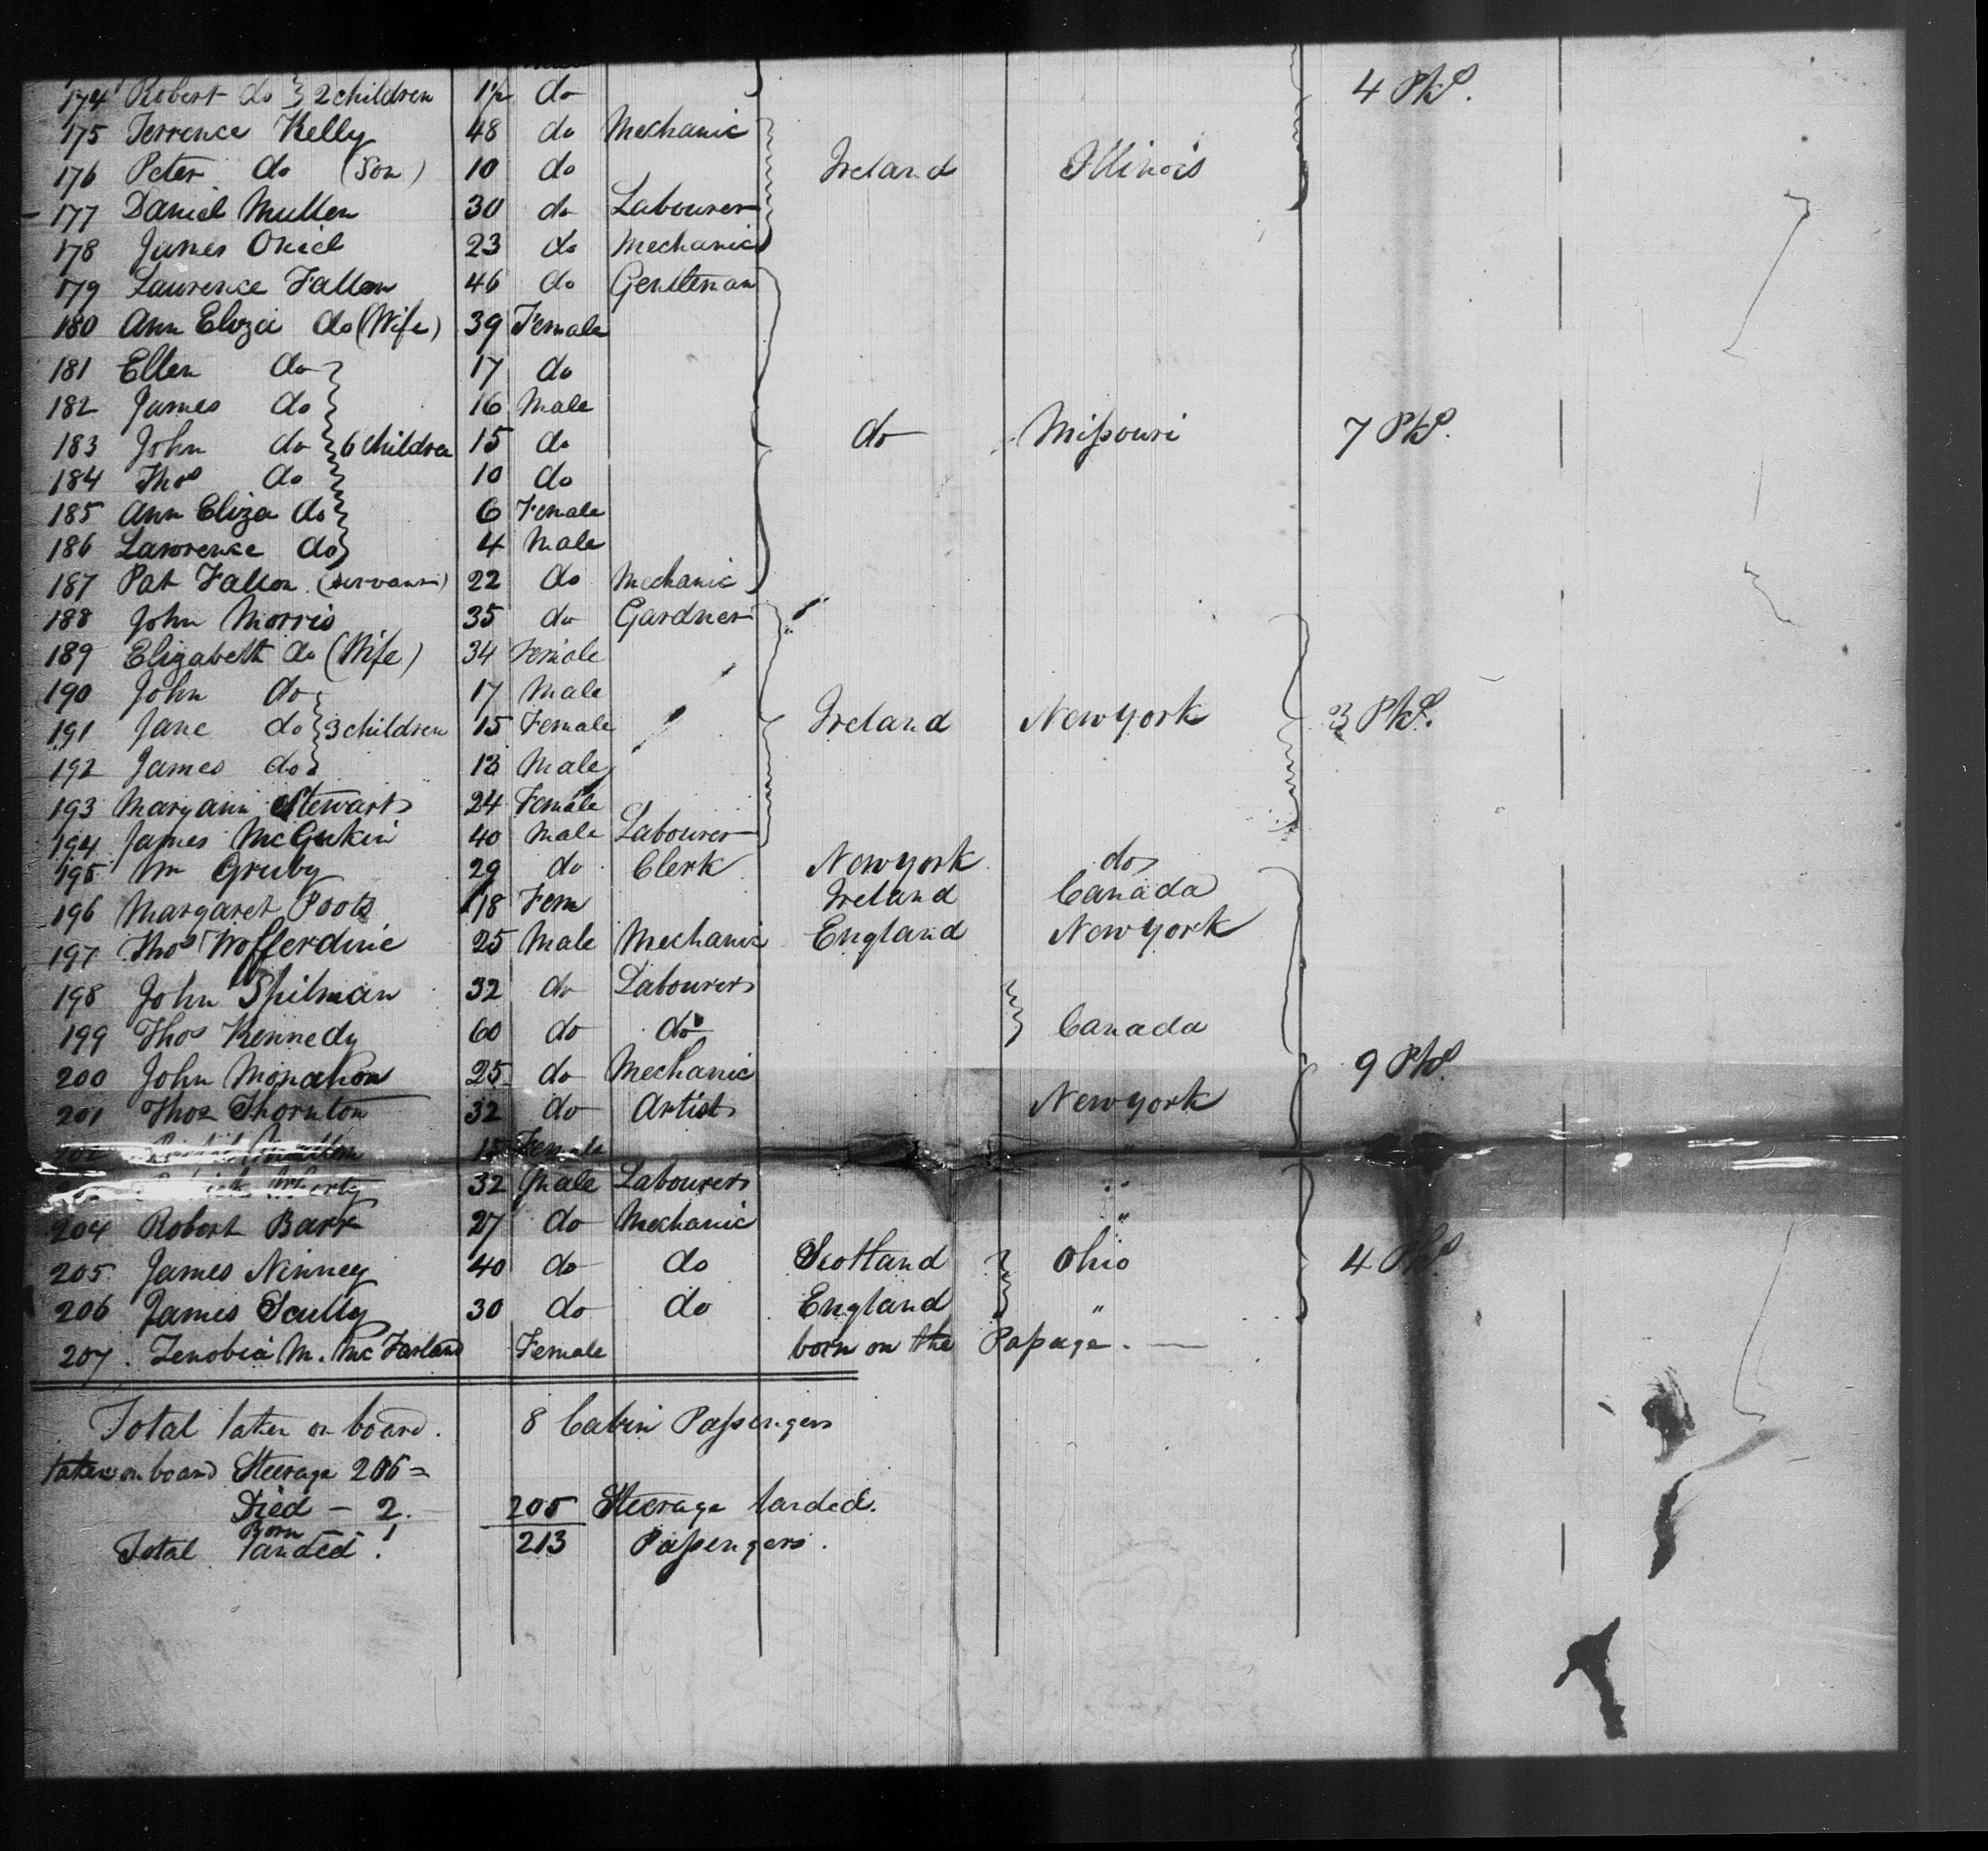 174 Robert do 2 children 1½ do 4 Pks.
175 Terrence Kelly 48 do Mechanic
176 Peter do (Son) 10 do Ireland Illinois
177 Daniel Mullen 30 do Labourer
178 James Oniel 23 do Mechanic
179 Laurence Fallon 46 do Gentleman
180 Ann Eliza do (Wife) 39 Female
181 Ellen do 17 do
182 James do 16 Male
183 John do 6 children 15 do do Missouri 7 Pks.
184 Thos do 10 do
185 Ann Eliza do 6 Female
186 Lawrence do 4 Male
187 Pat Fallon (servant) 22 do Mechanic
188 John Morris 35 do Gardner
189 Elizabeth do (Wife) 34 Female
190 John do 17 Male
191 Jane do 3 children 15 Female Ireland New york 3 Pks.
192 James do 13 Male
193 Maryann Stewart 24 Female
194 James McGukin 40 Male Labourer
195 Wm Gruby 29 do Clerk New york do
196 Margaret Poots 18 Fem Ireland Canada
197 Thos Wofferdine 25 Male Mechanic England New york
198 John Spilman 32 do Labourer
199 Thos Kennedy 60 do do Canada
200 John Monahon 25 do Mechanic 9 Pks.
201 Thos Thornton 32 do Artist New york
Female
32 Male Labourer "
204 Robert Barr 27 do Mechanic "
205 James Ninney 40 do do Scotland Ohio 4 Pks.
206 James Scully 30 do do England "
207. Zenobia M. McFarland Female born on the Passage.
Total taken on board. 8 Cabin Passengers
taken on board Steerage 206 =
Died - 2. 205 Steerage landed.
Born - 1
Total landed. 213 Passengers.